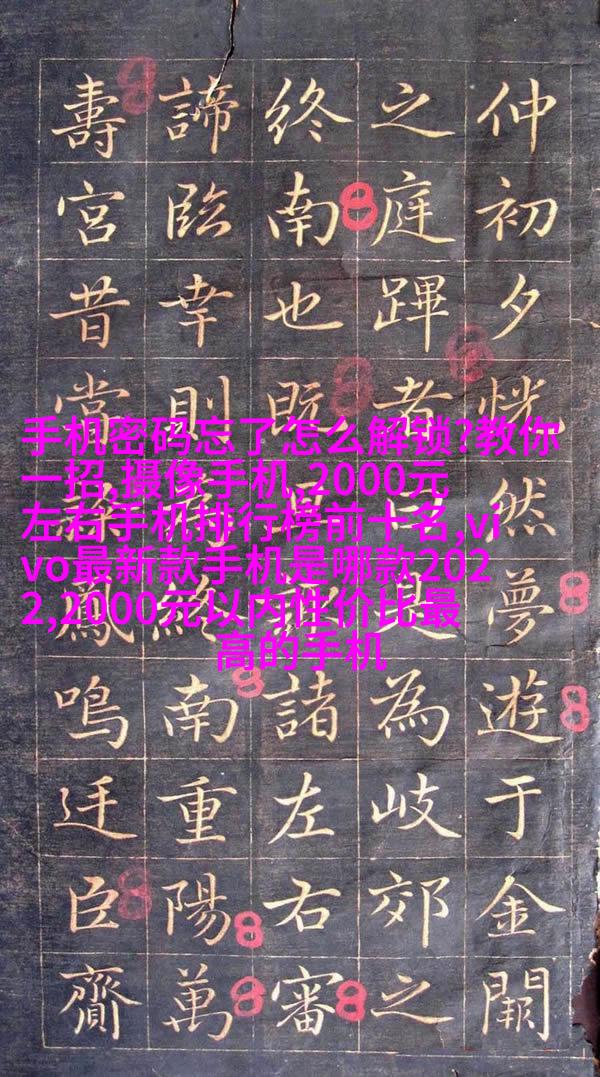 仲初夕恍然夢遊于金闕
之庭蹕者曰是為岐郊之
終南也既諸左右審
諦臨幸則終南重陽萬
壽宮昔當鳳鳴廷臣齎
手机密码忘了怎么解锁?教你
一招,摄像手机,2000元
左右手机排行榜前十名,vi
vo最新款手机是哪款202
2,2000元以内性价比最
高的手机